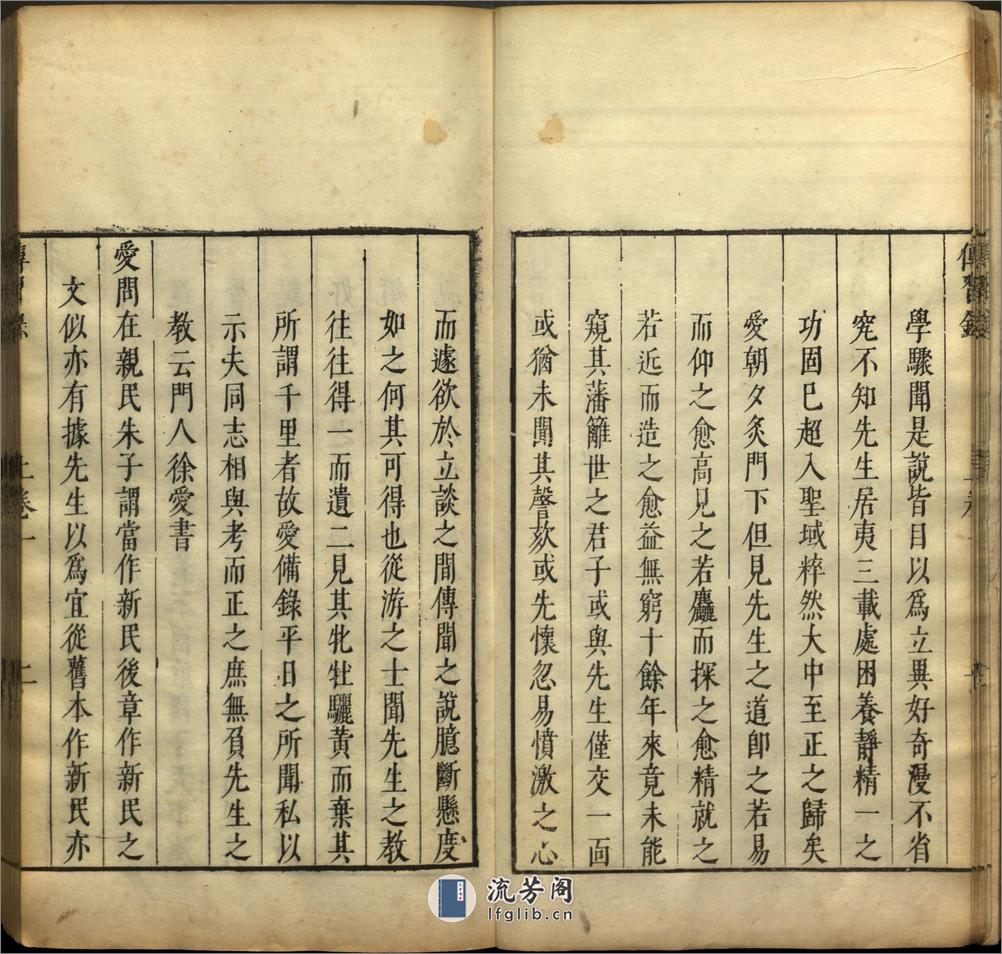 傳習錄
學驟聞是說皆目以爲立異好奇漫不省
究不知先生居夷三載處困養靜精一之
功固已超入聖域粹然大中至正之歸矣
愛朝夕炙門下但見先生之道卽之若易
而仰之愈高見之若麤而探之愈精就之
若近而造之愈益無窮十餘年來竟未能
窺其藩籬世之君子或與先生僅交一面
或猶未聞其謦欬或先懷忽易憤激之心
而遽欲於立談之間傳聞之說臆斷懸度
如之何其可得也從游之士聞先生之教
往往得一而遺二見其牝牡驪黃而棄其
所謂千里者故愛備錄平日之所聞私以
示夫同志相與考而正之庶無負先生之
教云門人徐愛書
愛問在親民朱子謂當作新民後章作新民之
文似亦有據先生以爲宜從舊本作新民亦
傳習錄 上卷一 二
流芳阁
lfglib.cn